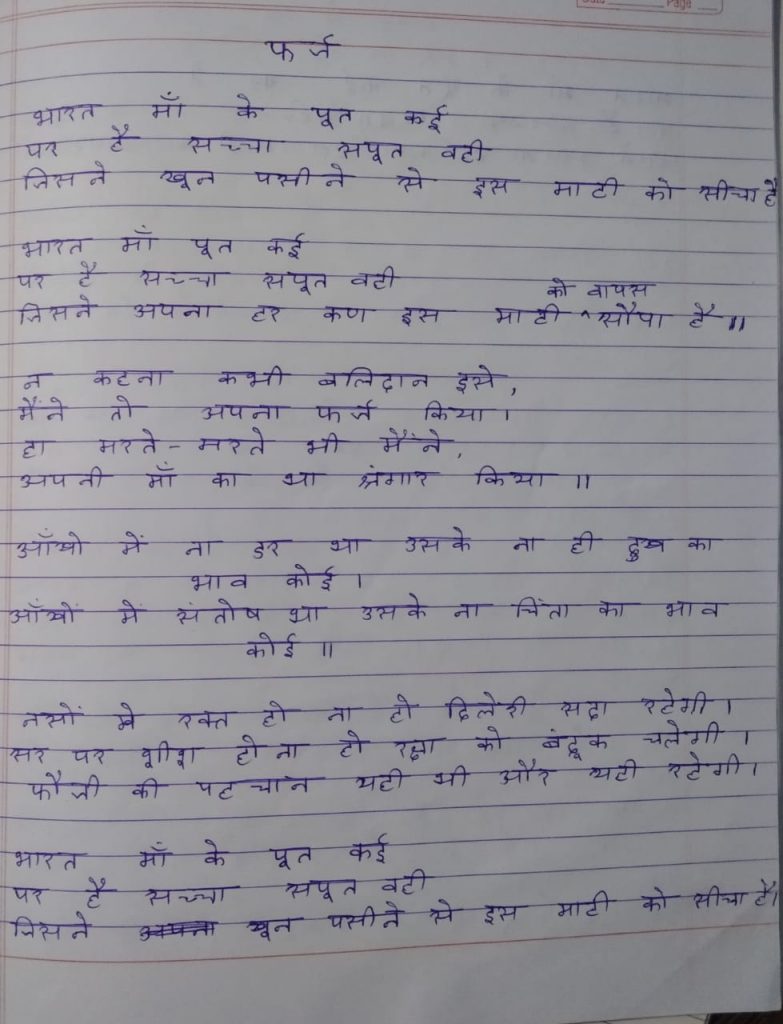 Date Page
फर्ज
भारत माँ के पूत कई
पर है सच्चा सपूत वही
जिसने खून पसीने से इस माटी को सीचा है
भारत माँ पूत कई
पर है सच्चा सपूत वही
जिसने अपना हर कण इस माटी ^को वापस सौपा है ॥
न कहना कभी बलिदान इसे,
मैंने तो अपना फर्ज किया।
हा मरते-मरते भी मैंने,
अपनी माँ का था श्रंगार किया ॥
आँखो में ना डर था उसके ना ही दुख का
भाव कोई।
आँखों में संतोष था उसके ना चिंता का भाव
कोई ॥
नसों मे रक्त हो ना हो दिलेरी सदा रहेगी।
सर पर शीश हो ना हो रक्षा को बंदूक चलेगी।
फौजी की पहचान यही थी और यही रहेगी।
भारत माँ के पूत कई
पर है सच्चा सपूत वही
जिसने खून पसीने से इस माटी को सीचा है।